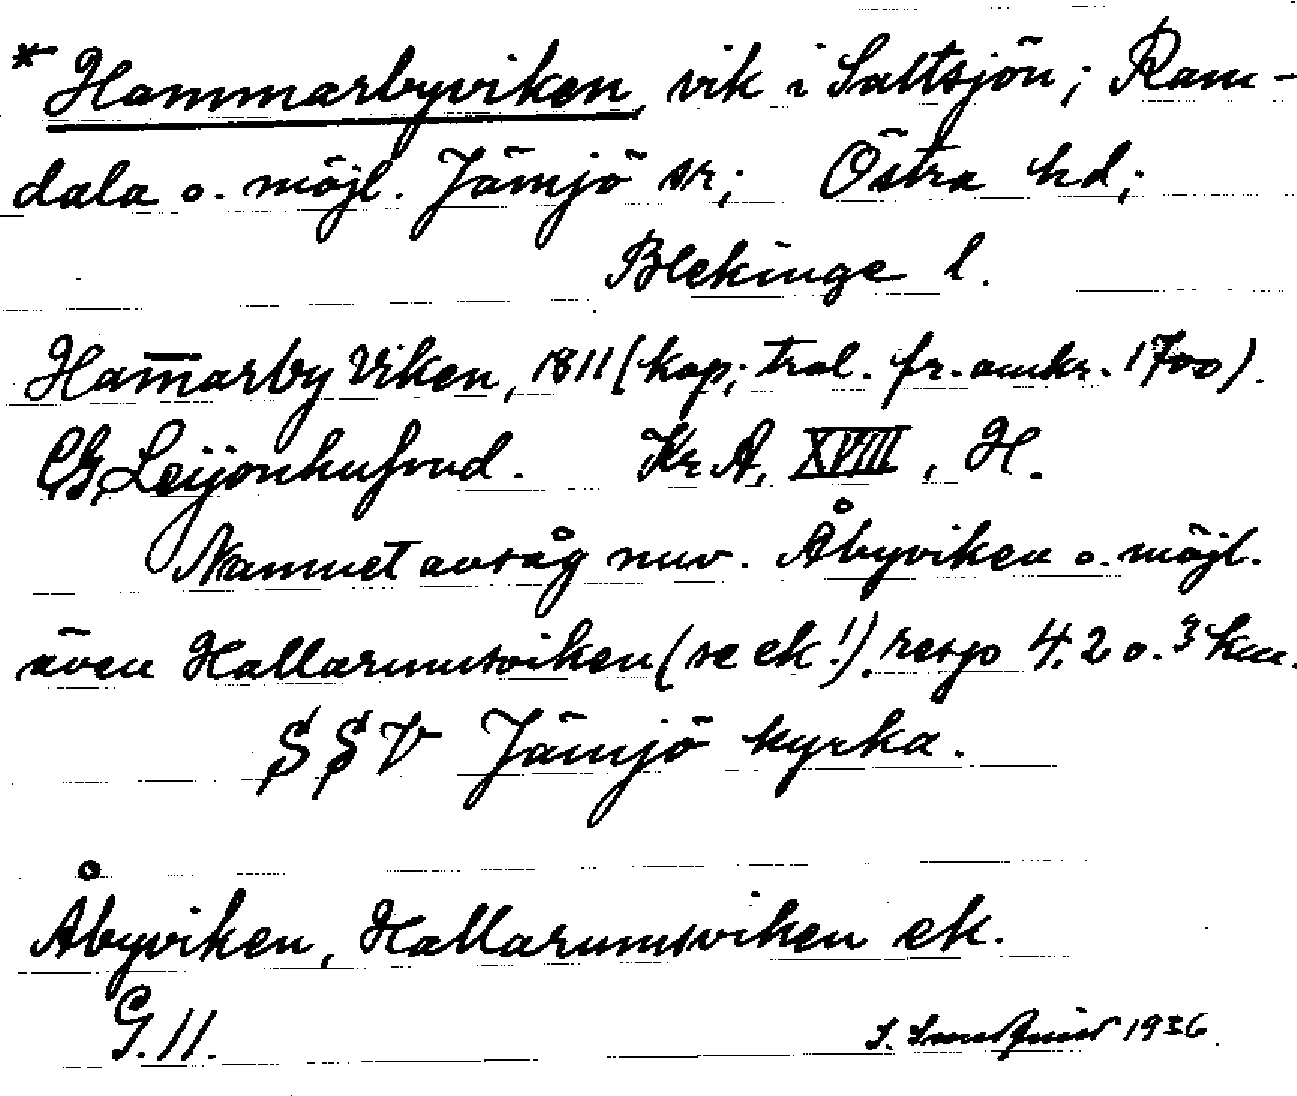 * Hammarbyviken, vik i Saltsjön; Ram-
dala o. möjl. Jämjö sr; Östra hd;
Blekinge l.
Ham̄arby Viken, 1811 (kop; trol. fr. omkr. 1700).
CG Leijonhufvud. Kr A, XVIII, H.
Namnet avsåg nuv. Åbyviken o. möjl.
även Hallarumsviken (se ek!). resp 4.2 o. 3 km.
SSV Jämjö kyrka.
Åbyviken, Hallarumsviken ek.
G. 11.
1936